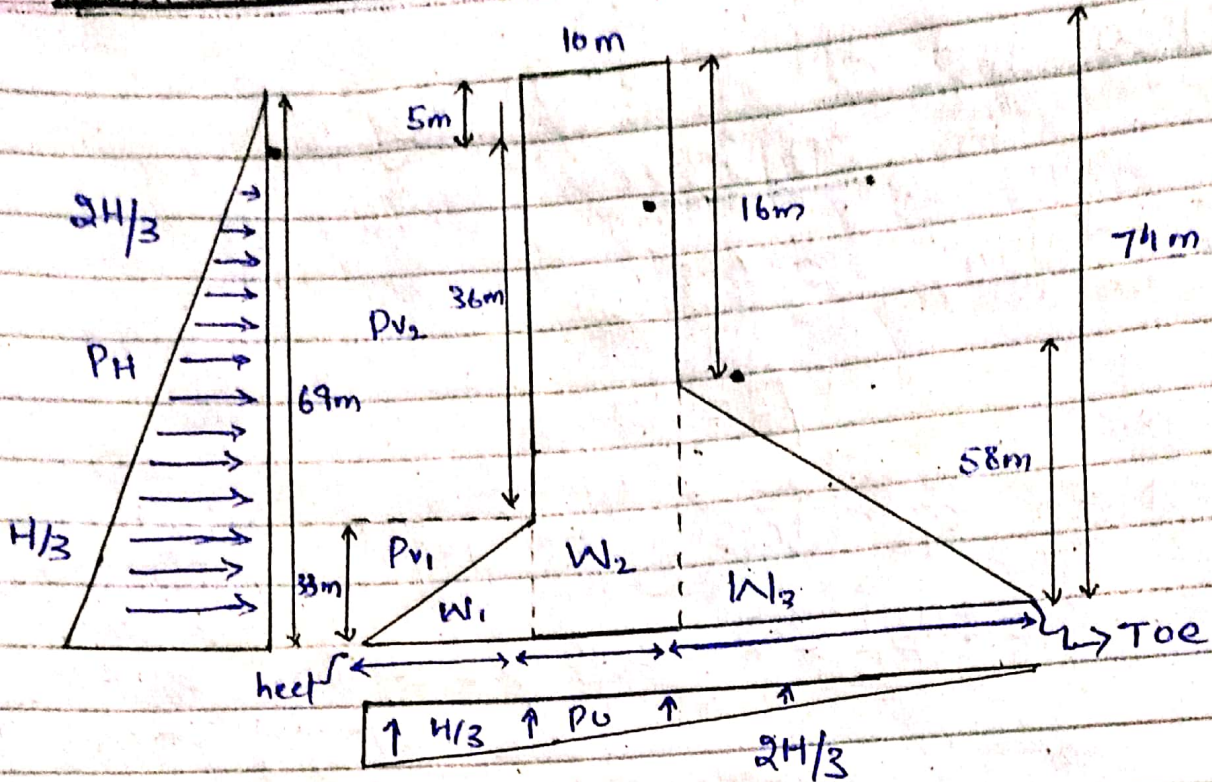 10m
5m
2H/3
16m
74m
36m
PV₂
PH
69m
58m
H/3
PV₁
33m
W₂
W₁
W₃
TOE
heel
H/3 PU
2H/3